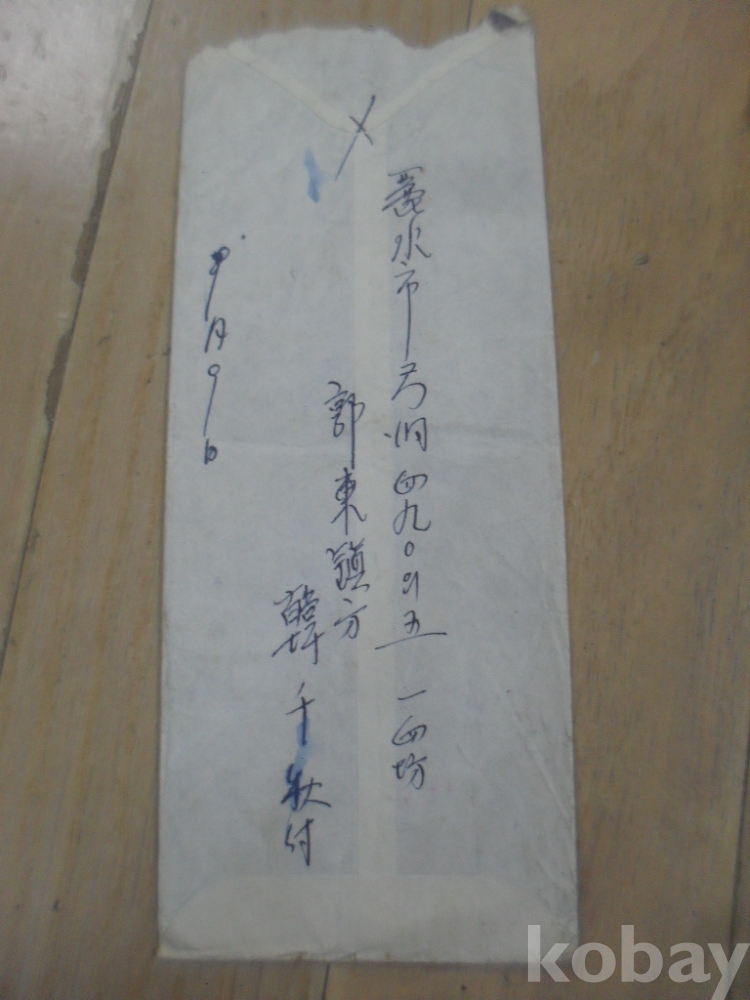 〆
麗水市 洞四九0의五 一四坊
郭東鎭方
千秋付
9月9日
kobay